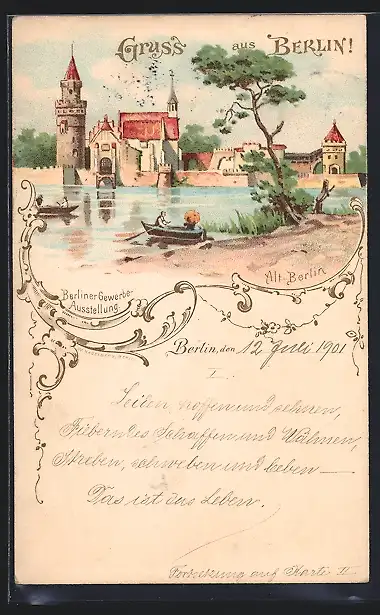 Gruss aus BERLIN!
Alt-Berlin
Berliner Gewerbe-
Ausstellung.
Berlin, den 12 Juli 1901
I.
hoffen und sehnen,
Fieberndes Schaffen und Wähnen,
Streben, schweben und beben —
Das ist das Leben.
Fortsetzung auf Karte II